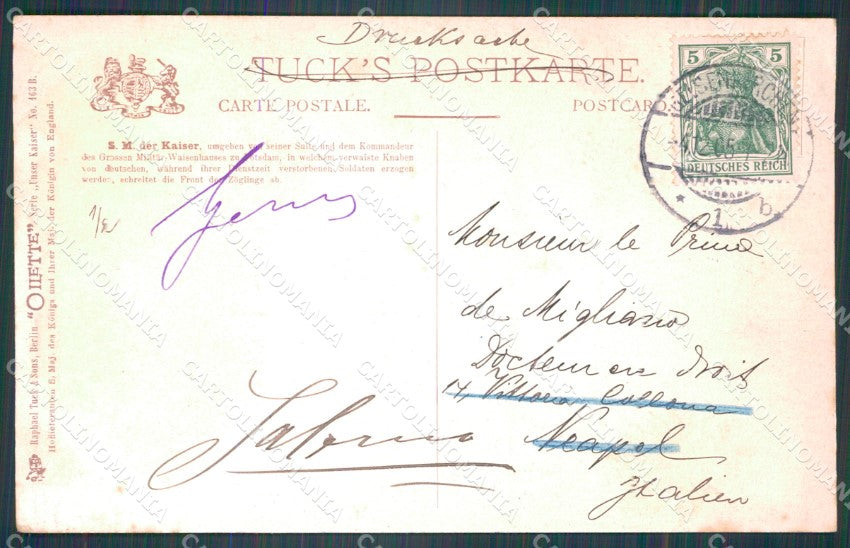 Drucksache
TUCK'S POSTKARTE.
CARTE POSTALE. POSTCARD
S. M. der Kaiser, umgeben von seiner Suite und dem Kommandeur
des Grossen Militär-Waisenhauses zu Potsdam, in welchem verwaiste Knaben
von deutschen, während ihrer Dienstzeit verstorbenen Soldaten erzogen
werden, schreitet die Front der Zöglinge ab.
5 5
DEUTSCHES REICH
1 b
Monsieur le Prince
de Migliano
Docteur en droit
14, Vittoria Collona
Neapel
Italien
Salerno
Raphael Tuck & Sons, Berlin. "OILETTE" Serie „Unser Kaiser" No. 163 B.
Hoflieferanten S. Maj. des Königs und Ihrer Maj. der Königin von England.
CARTOLINOMANIA